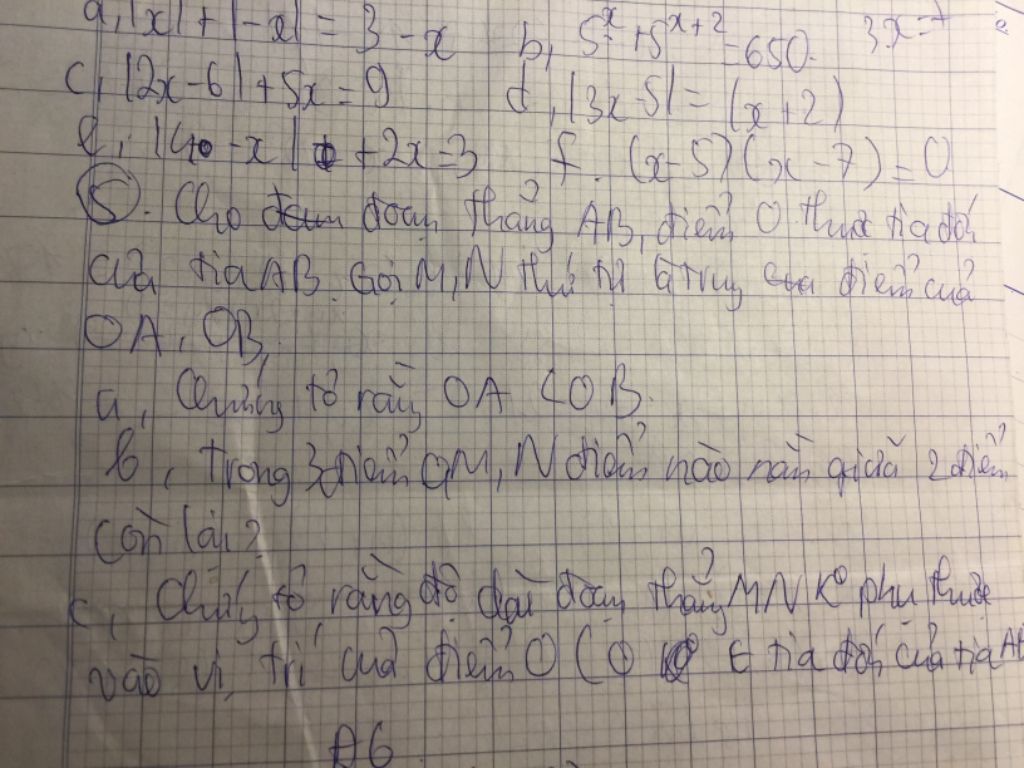 a, |x| + |-x| = 3 - x b, 5^x + 5^{x+2} = 650. 3x = 7
c, |2x-6| + 5x = 9 d, |3x-5| = (x+2)
e, |40-x| + 2x = 3 f. (x-5)(x-7) = 0
⑤. Cho đoạn thẳng AB, điểm O thuộc tia đối
của tia AB. Gọi M, N thứ tự là trung điểm của
OA, OB.
a, Chứng tỏ rằng OA < OB.
b, trong 3 điểm O, M, N điểm nào nằm giữa 2 điểm
còn lại?
c, Chứng tỏ rằng độ dài đoạn thẳng MN k° phụ thuộc
vào vị trí của điểm O (O ∈ tia đối của tia AB